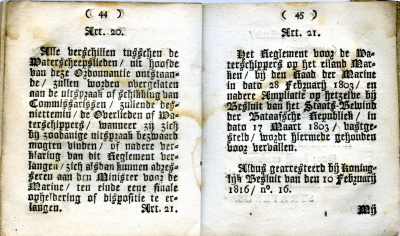 ( 44 )
Art. 20.
Alle verschillen tusschen de
Waterscheepslieden / uit hoofde
van deze Ordonnantie ontstaan-
de / zullen worden overgelaten
aan de uitspraak of schikking van
Commissarissen / zullende des-
niettemin / de Overlieden of Wa-
terschippers / wanneer zij zich
bij zoodanige uitspraak bezwaard
mogten vinden / of nadere ver-
klaring van dit Reglement ver-
langen / zich alsdan kunnen adres-
seren aan den Minister voor de
Marine / ten einde eene finale
opheldering of dispositie te er-
langen.
Art. 21.
( 45 )
Art. 21.
Het Reglement voor de Wa-
terschippers op het eiland Mar-
ken / bij den Raad der Marine
in dato 28 Februarij 1803 / en
nadere Ampliatie op hetzelve bij
Besluit van het Staats-Bewind
der Bataafsche Republiek / in
dato 17 Maart 1803 / vastge-
steld / wordt hiermede gehouden
voor vervallen.
Aldus gearresteerd bij Koning-
lijk Besluit van den 10 February
1816 / n°. 16.
Wij